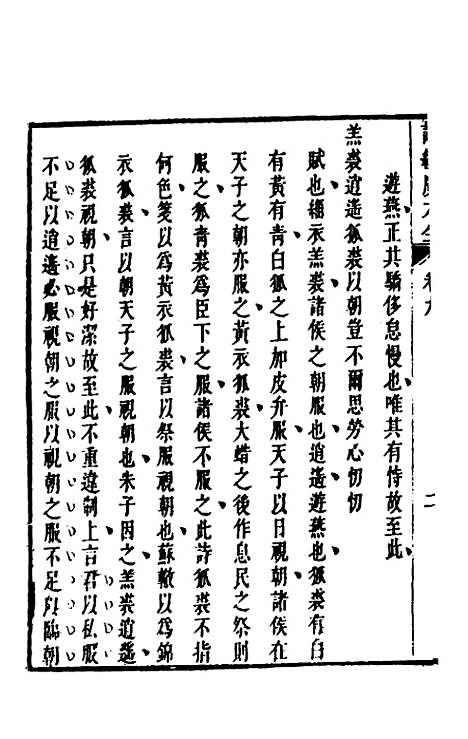 卷九
二
遊燕正其驕侈怠慢也唯其有恃故至此
羔裘逍遙狐裘以朝豈不爾思勞心忉忉
賦也緇衣羔裘諸侯之朝服也逍遙遊燕也狐裘有白
有黃有青白狐之上加皮弁服天子以日視朝諸侯在
天子之朝亦服之黃衣狐裘大蜡之後作息民之祭則
服之狐青裘爲臣下之服諸侯不服之此詩狐裘不指
何色箋以爲黃衣狐裘言以祭服視朝也蘇轍以爲錦
衣狐裘言以朝天子之服視朝也朱子因之羔裘逍遙
狐裘視朝只是好潔故至此不重違制上言君以私服
不足以逍遙必服視朝之服以視朝之服不足與臨朝